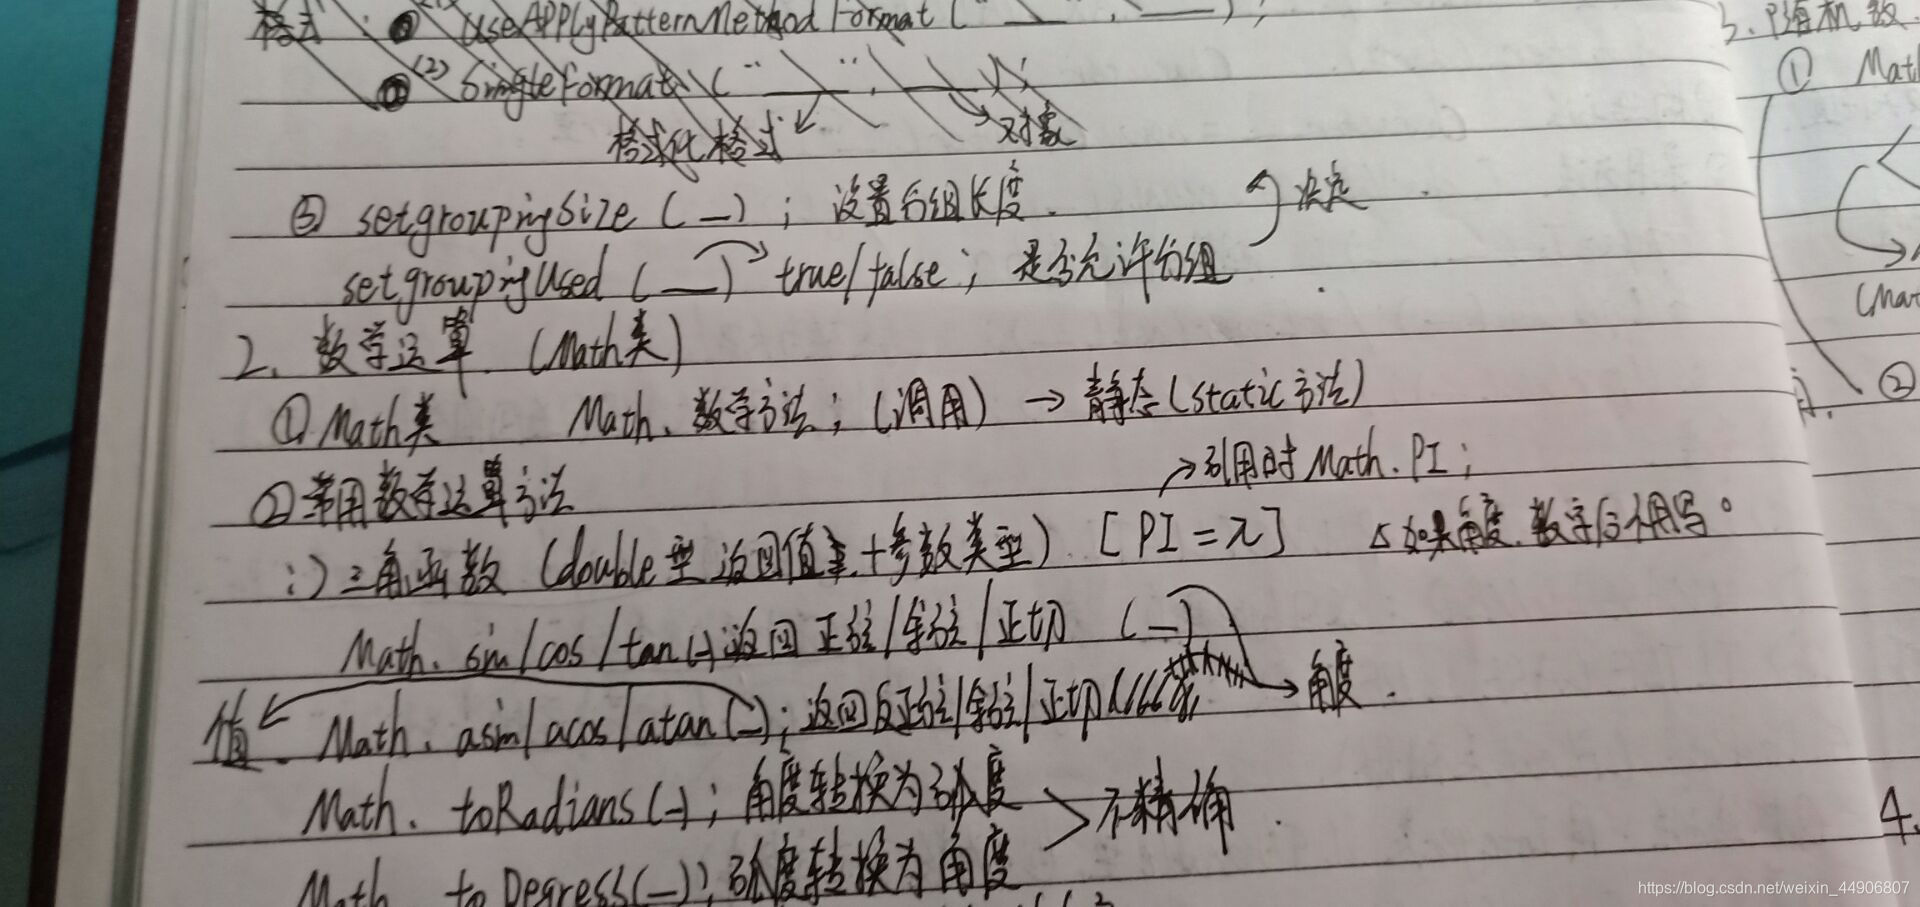 格式：① UseApplyPatternMethodFormat("___", ___);
(2) SingleFormat("___", ___);
格式化格式 对象
③ setgroupingSize(_); 设置分组长度. 决定
setgroupingUsed(__) true/false; 是否允许分组
2. 数学运算 (Math类)
① Math类 Math.数学方法; (调用) → 静态(static方法)
→引用时 Math.PI;
② 常用数学运算方法
i) 三角函数 (double型返回值+参数类型). [PI=π] 如果角度.数字后不用写°
Math.sin/cos/tan(-) 返回正弦/余弦/正切 (_)
值 Math.asin/acos/atan(-); 返回反正弦/余弦/正切 → 角度.
Math.toRadians(-); 角度转换为弧度 > 不精确.
Math toDegress(_); 弧度转换为角度
3. 随机数
①
②
4.
https://blog.csdn.net/weixin_44906807